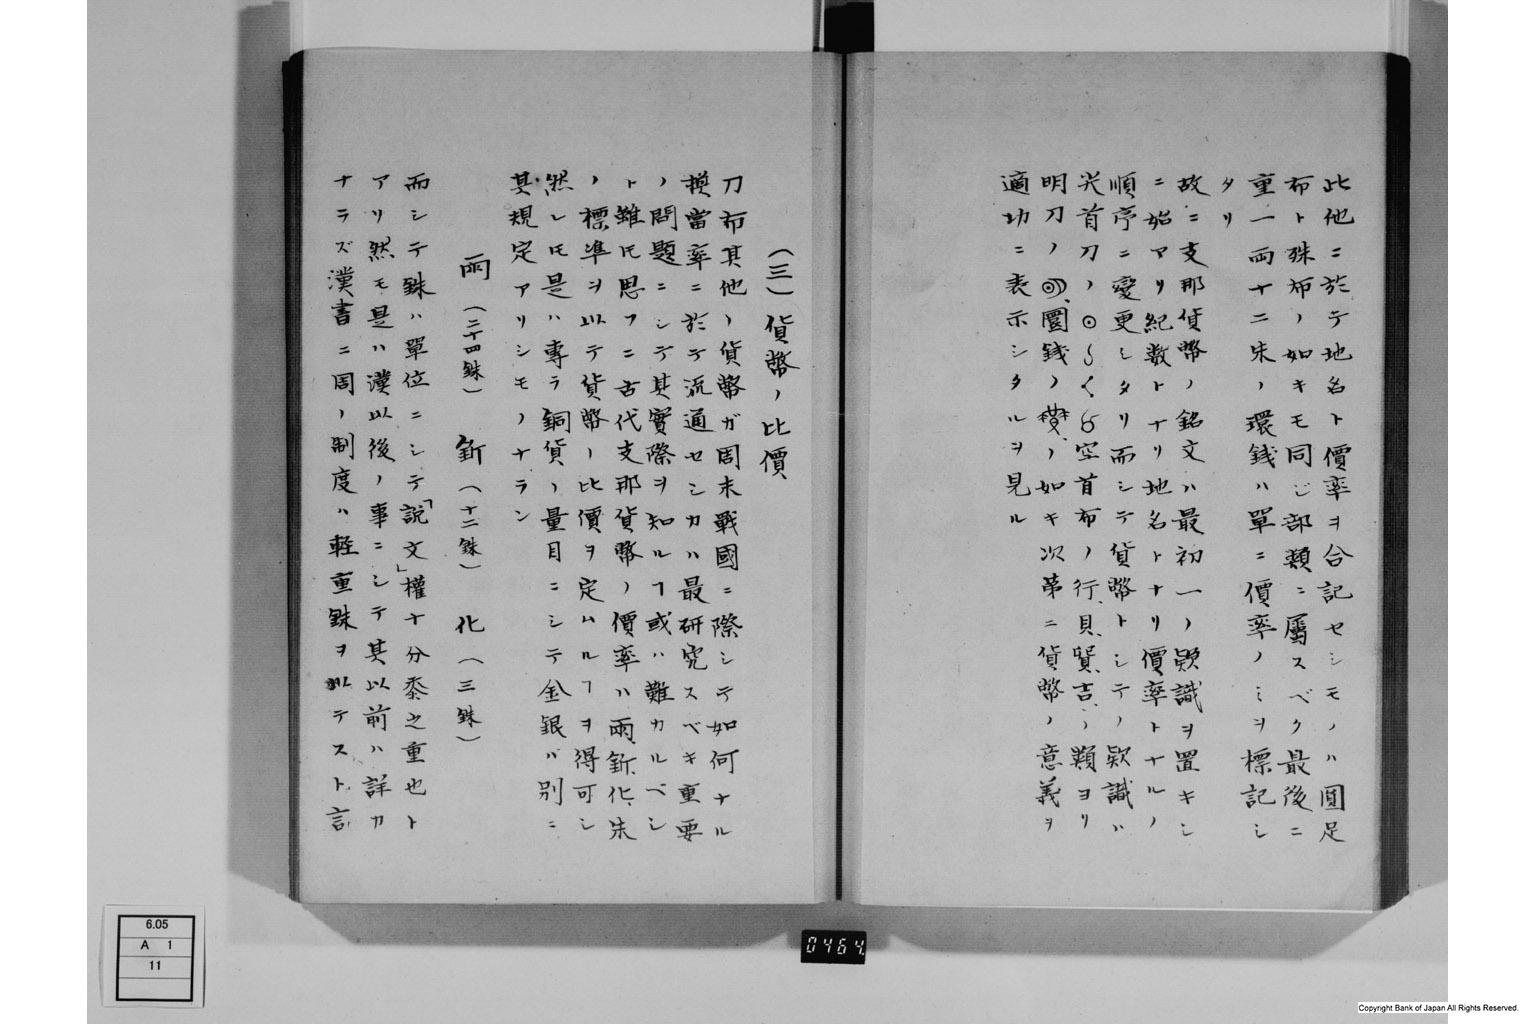 此他ニ於テ地名ト價率ヲ合記セシモノハ圓足
布ト殊布ノ如キモ同ジ部類ニ屬スベク最後ニ
重一両十二朱ノ環錢ハ單ニ價率ノミヲ標記シ
タリ
故ニ支那貨幣ノ銘文ハ最初一ノ欵識ヲ置キシ
ニ始マリ紀数トナリ地名トナリ價率トナルノ
順序ニ變更シタリ而シテ貨幣トシテノ欵識ハ
尖首刀ノ 空首布ノ行、貝、貿、吉、ノ類ヨリ
明刀ノ 圜錢ノ 、ノ如キ次第ニ貨幣ノ意義ヲ
適切ニ表示シタルヲ見ル
(三)貨幣ノ比價
刀布其他ノ貨幣ガ周末戰國ニ際シテ如何ナル
換當率ニ於テ流通セシカハ最研究スベキ重要
ノ問題ニシテ其實際ヲ知ルヿ或ハ難カルベシ
ト雖㪽思フニ古代支那貨幣ノ價率ハ兩、釿、化、朱
ノ標準ヲ以テ貨幣ノ比價ヲ定ムルヿヲ得可シ
然レ㪽是ハ專ラ銅貨ノ量目ニシテ金銀ハ別ニ
其規定アリシモノナラン
兩(二十四銖) 釿(十二銖) 化(三銖)
而シテ銖ハ單位ニシテ「說文」權十分黍之重也ト
アリ然モ是ハ漢以後ノ事ニシテ其以前ハ詳カ
ナラズ漢書ニ周ノ制度ハ軽重銖ヲ以テスト言
6.05
A 1
11
0464
Copyright Bank of Japan All Rights Reserved.